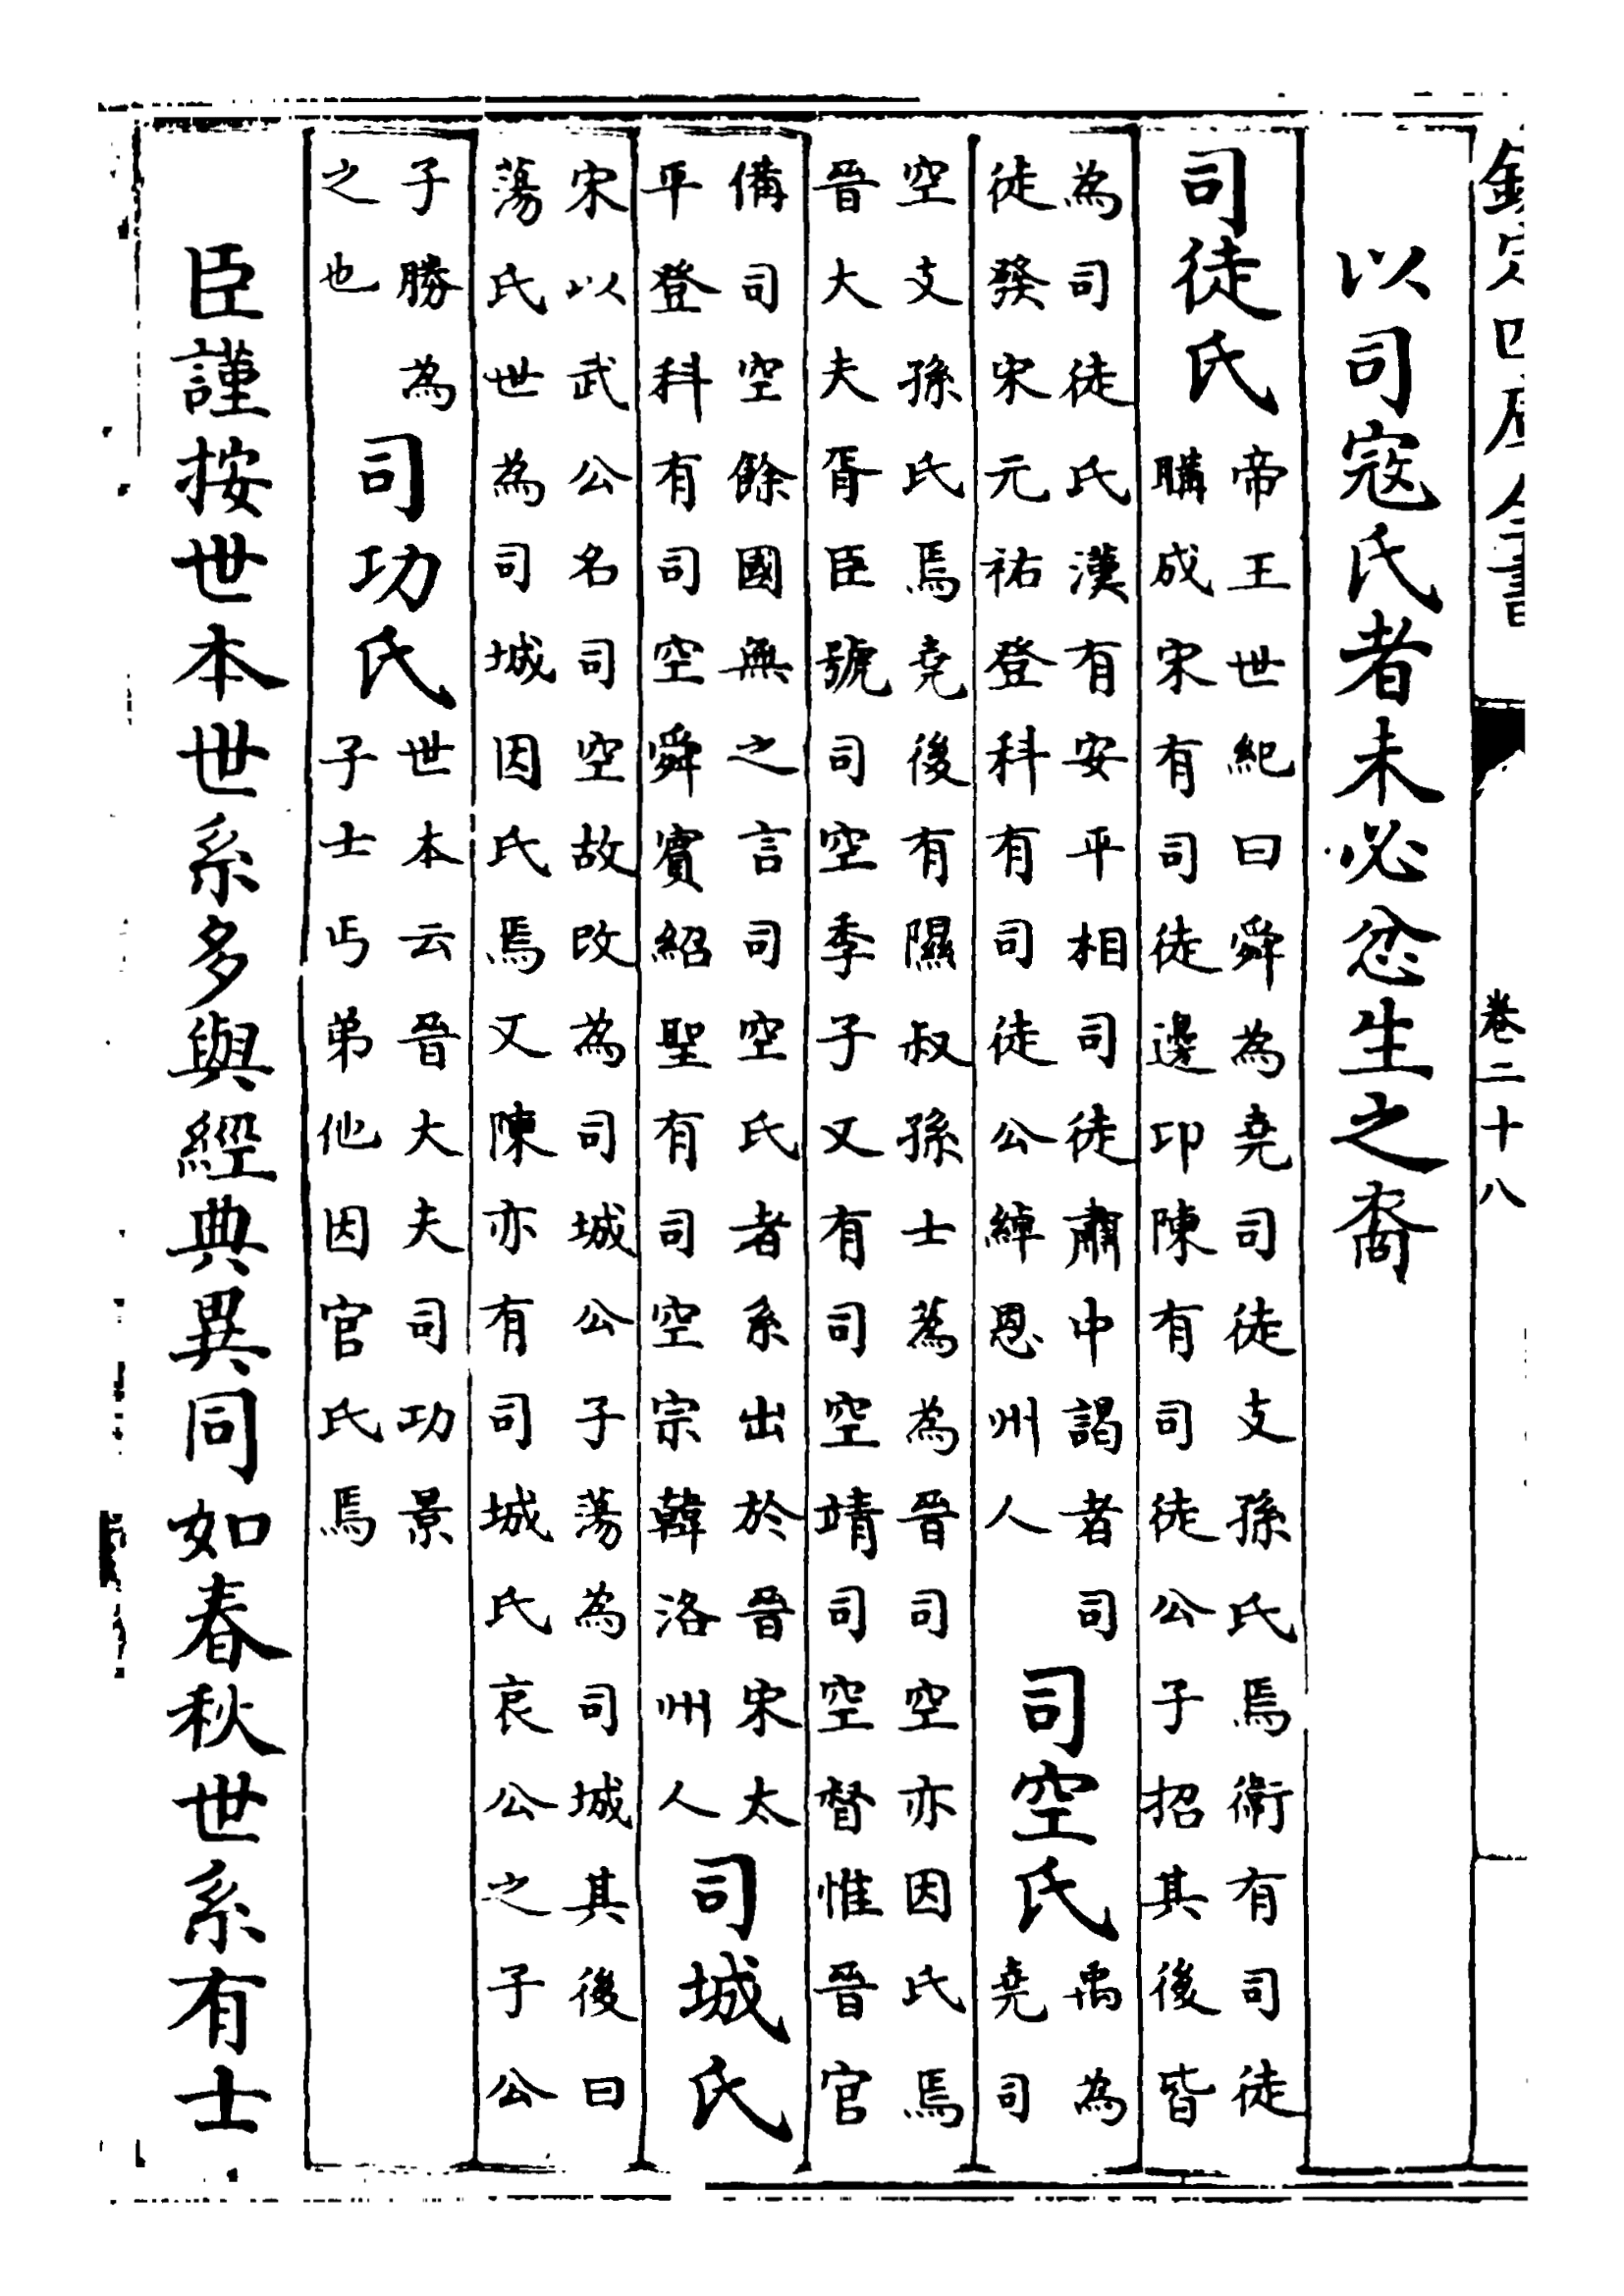 欽定四庫全書 卷二十八
以司寇氏者未必忿生之裔
司徒氏
帝王世紀曰舜為堯司徒支孫氏焉衛有司徒
瞞成宋有司徒邊卬陳有司徒公子招其後皆
為司徒氏漢有安平相司徒肅中謁者司
徒發宋元祐登科有司徒公綽恩州人
司空氏
禹為
堯司
空支孫氏焉堯後有隰叔孫士蒍為晉司空亦因氏焉
晉大夫胥臣號司空季子又有司空靖司空督惟晉官
備司空餘國無之言司空氏者系出於晉宋太
平登科有司空舜賓紹聖有司空宗韓洛州人
司城氏
宋以武公名司空故改為司城公子蕩為司城其後曰
蕩氏世為司城因氏焉又陳亦有司城氏哀公之子公
子勝為
之也
司功氏
世本云晉大夫司功景
子士丐弟他因官氏焉
臣謹按世本世系多與經典異同如春秋世系有士